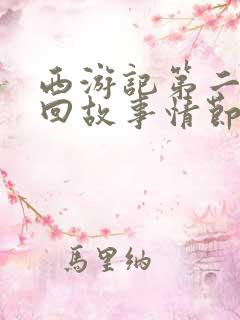 西游記第二
回故事情節
馬里納